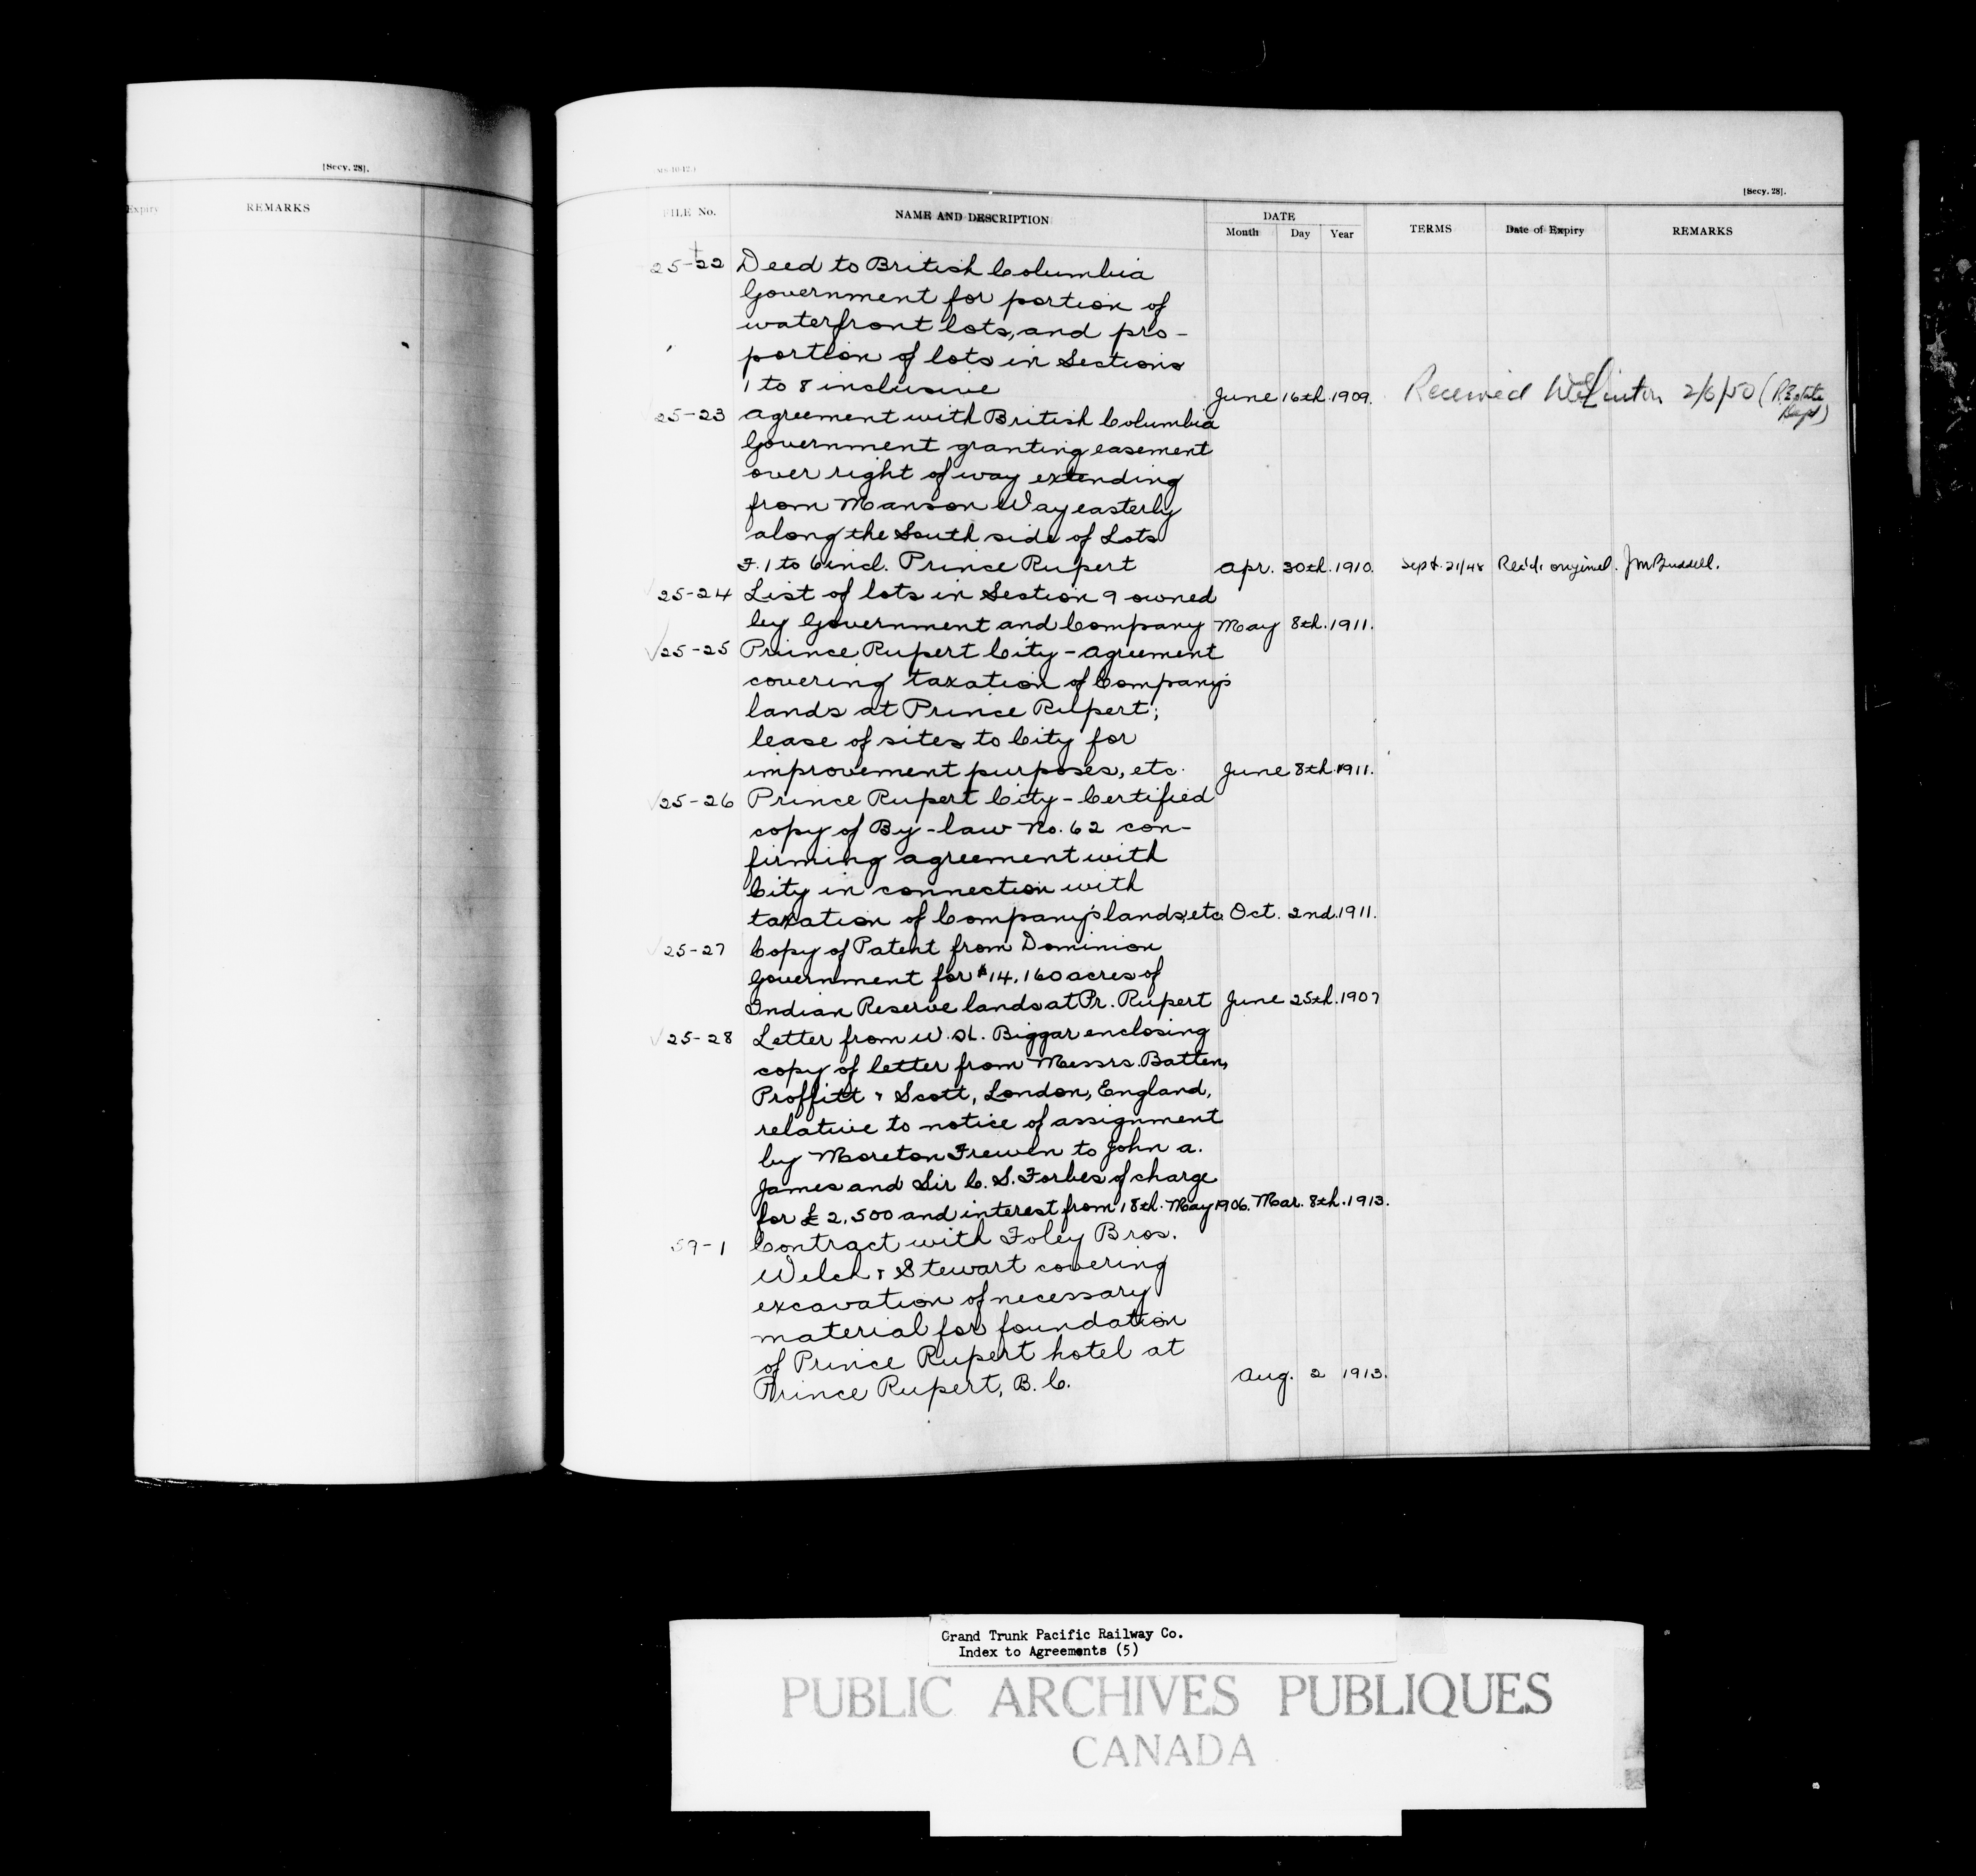 [Secy. 28].
Expiry REMARKS
[Secy. 28].
FILE No. NAME AND DESCRIPTION DATE Month Day Year TERMS Date of Expiry REMARKS
25-22 Deed to British Columbia
Government for portion of
waterfront lots, and pro-
portion of lots in Sections
1 to 8 inclusive June 16th. 1909. Received 2/6/50 (R. Estate
Dept)
25-23 Agreement with British Columbia
Government granting easement
over right of way extending
from Manson Way easterly
along the South side of Lots
F. 1 to 6 incl. Prince Rupert Apr. 30th. 1910. Sept. 21/48 Rec'd. original.
25-24 List of lots in Section 9 owned
by Government and Company May 8th. 1911.
√25-25 Prince Rupert City - Agreement
covering taxation of Company's
lands at Prince Rupert;
lease of sites to City for
improvement purposes, etc. June 8th. 1911.
√25-26 Prince Rupert City - Certified
copy of By-law No. 62 con-
firming agreement with
City in connection with
taxation of Company's lands, etc. Oct. 2nd. 1911.
√25-27 Copy of Patent from Dominion
Government for 14,160 acres of
Indian Reserve lands at Pr. Rupert June 25th. 1907
√25-28 Letter from W. H. Biggar enclosing
copy of letter from Messrs. Batten,
Proffitt & Scott, London, England,
relative to notice of assignment
by Moreton Frewen to John A.
James and Sir C. S. Forbes of charge
for £2,500 and interest from 18th. May 1906. Mar. 8th. 1913.
59-1 Contract with Foley Bros.
Welch & Stewart covering
excavation of necessary
material for foundation
of Prince Rupert hotel at
Prince Rupert, B.C. Aug. 2 1913.
Grand Trunk Pacific Railway Co.
Index to Agreements (5)
PUBLIC ARCHIVES PUBLIQUES
CANADA